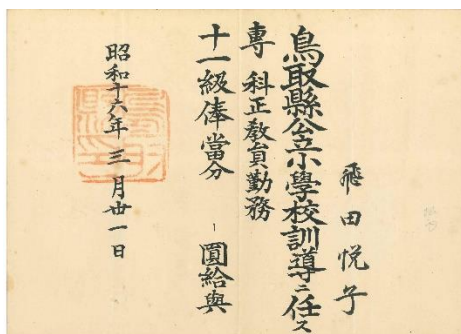 飛田悦子
鳥取縣公立小學校訓導ニ任ス
專科正教員勤務
十一級俸當分 圓給與
昭和十六年三月卅一日